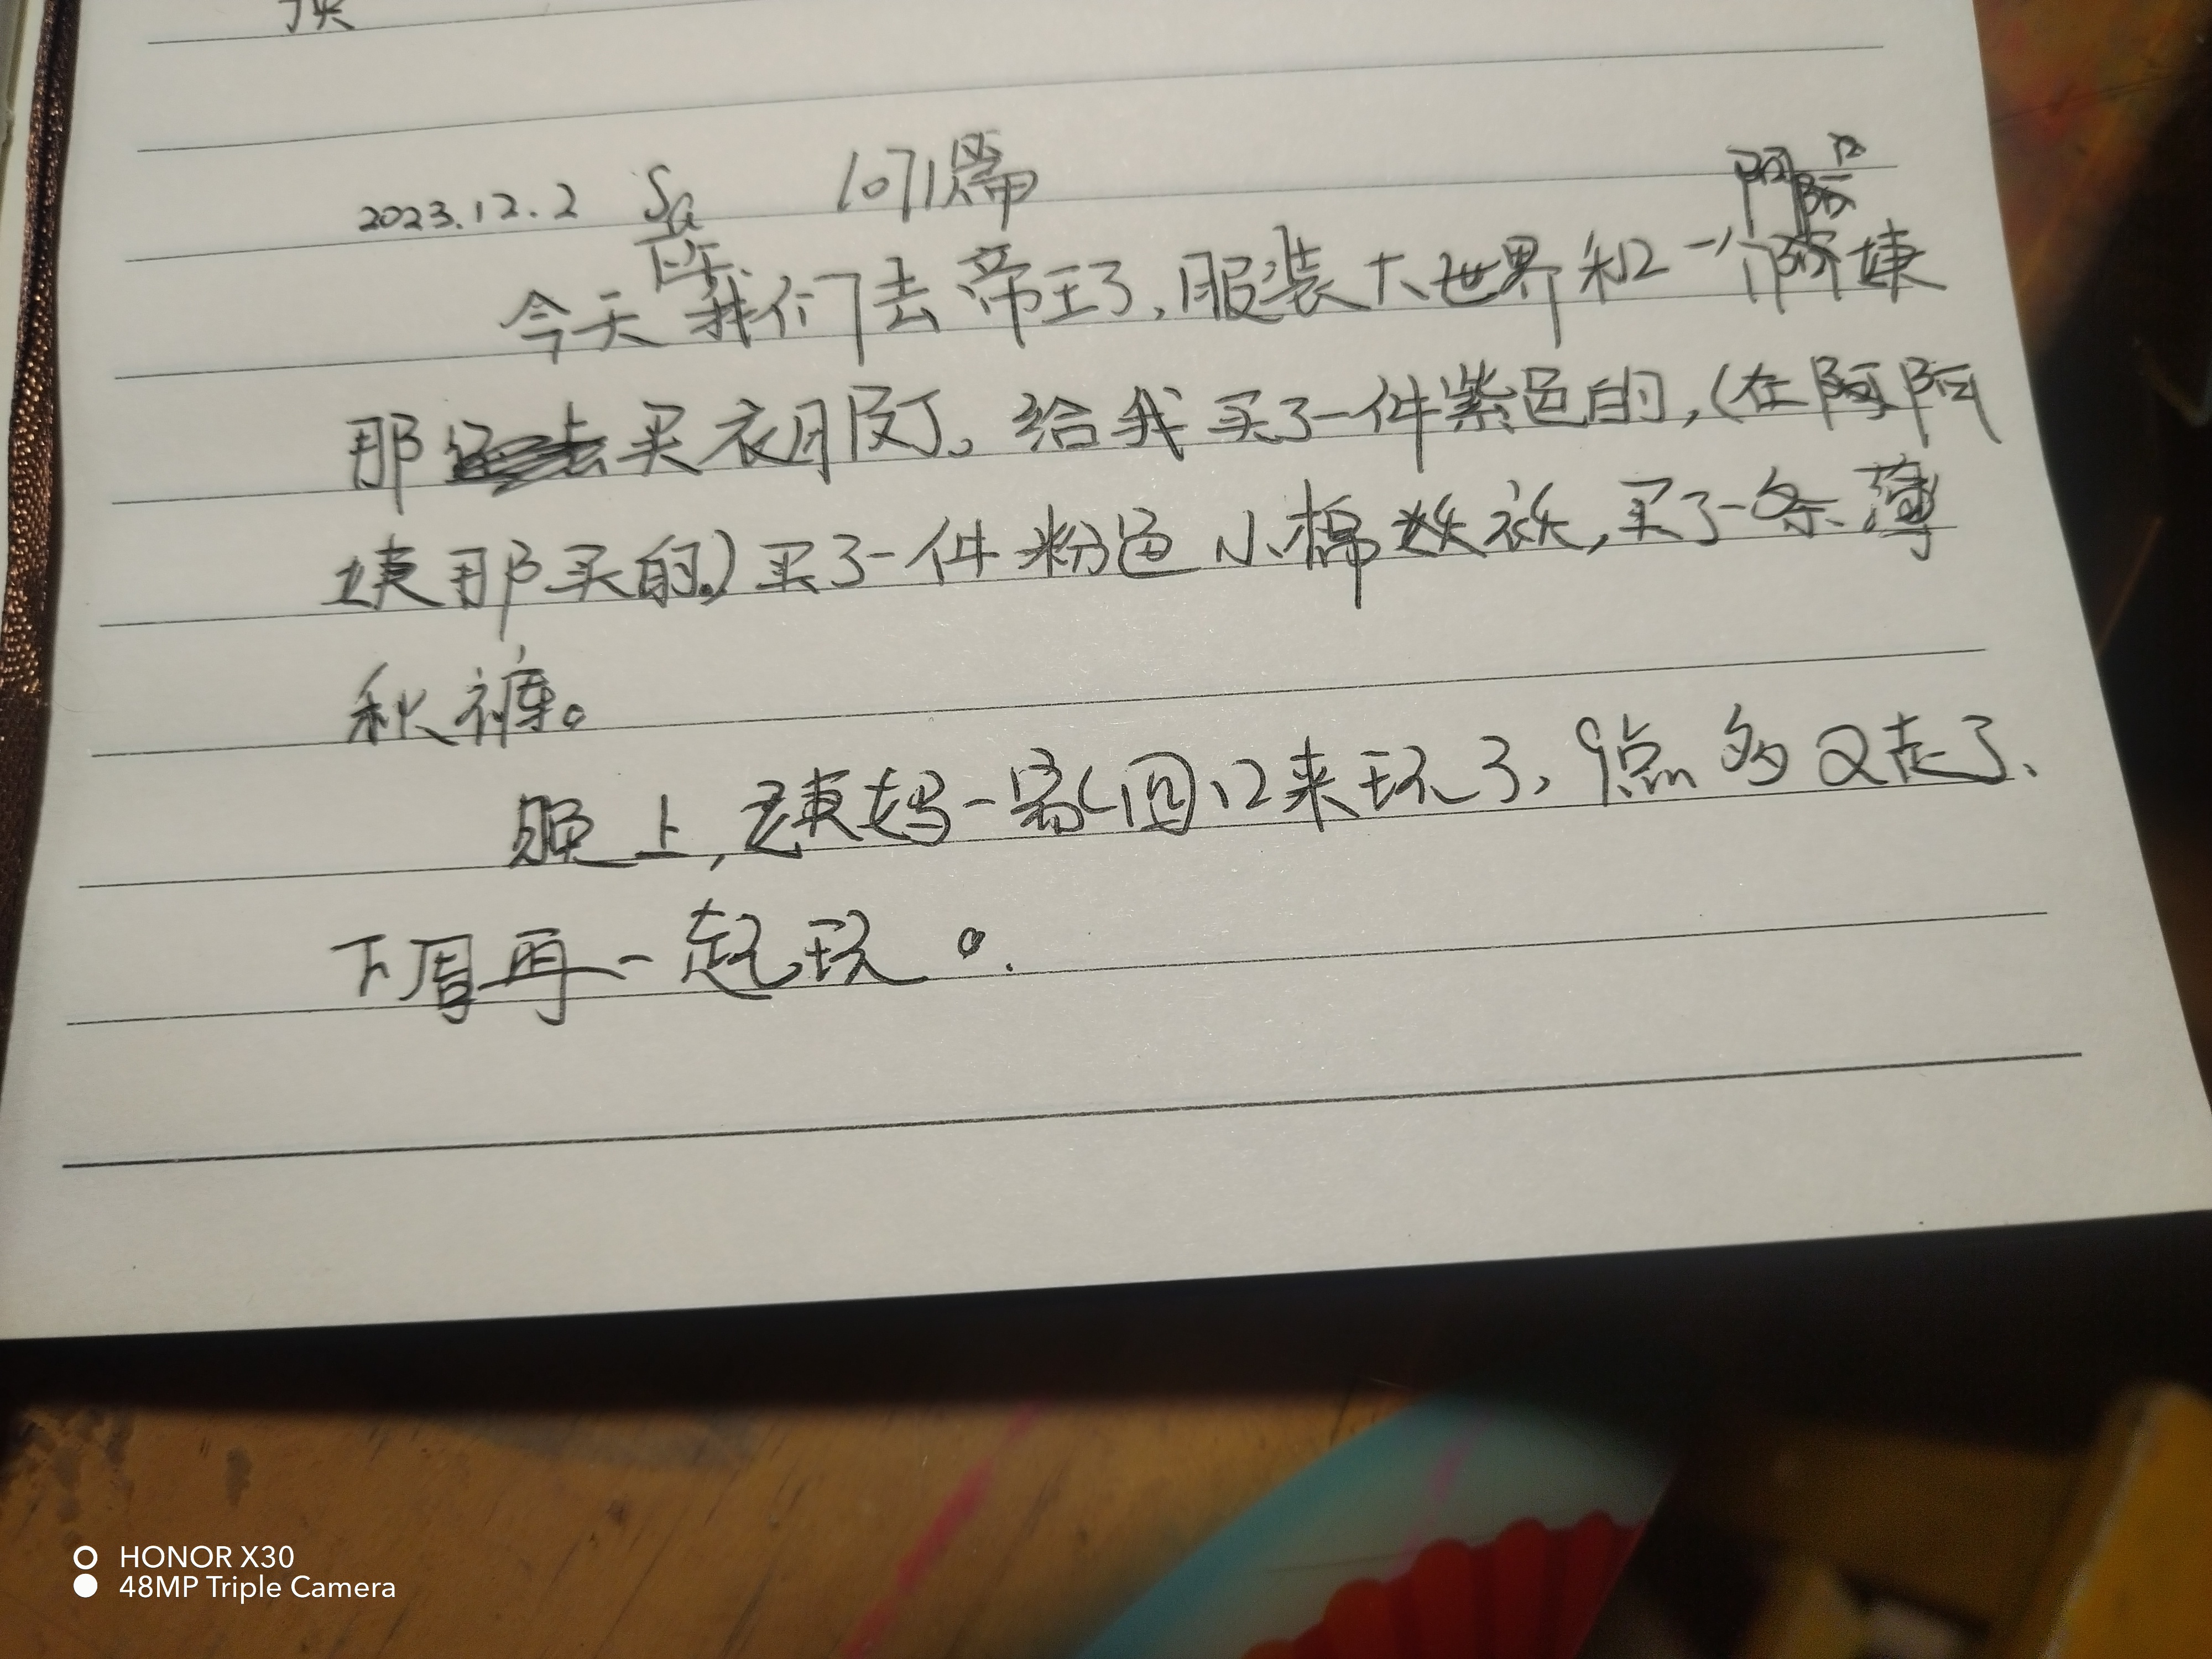 顶
2023.12.2 Sa 1071篇
今天我们去帝王了,服装大世界和一个阿姨
那买衣服了。给我买了一件紫色的,(在阿
姨那买的.)买了一件粉色小棉袄,买了一条薄
秋裤。
晚上,婕妈一家(四)口来玩了,9点多又走了、
下周再一起玩。
HONOR X30
48MP Triple Camera